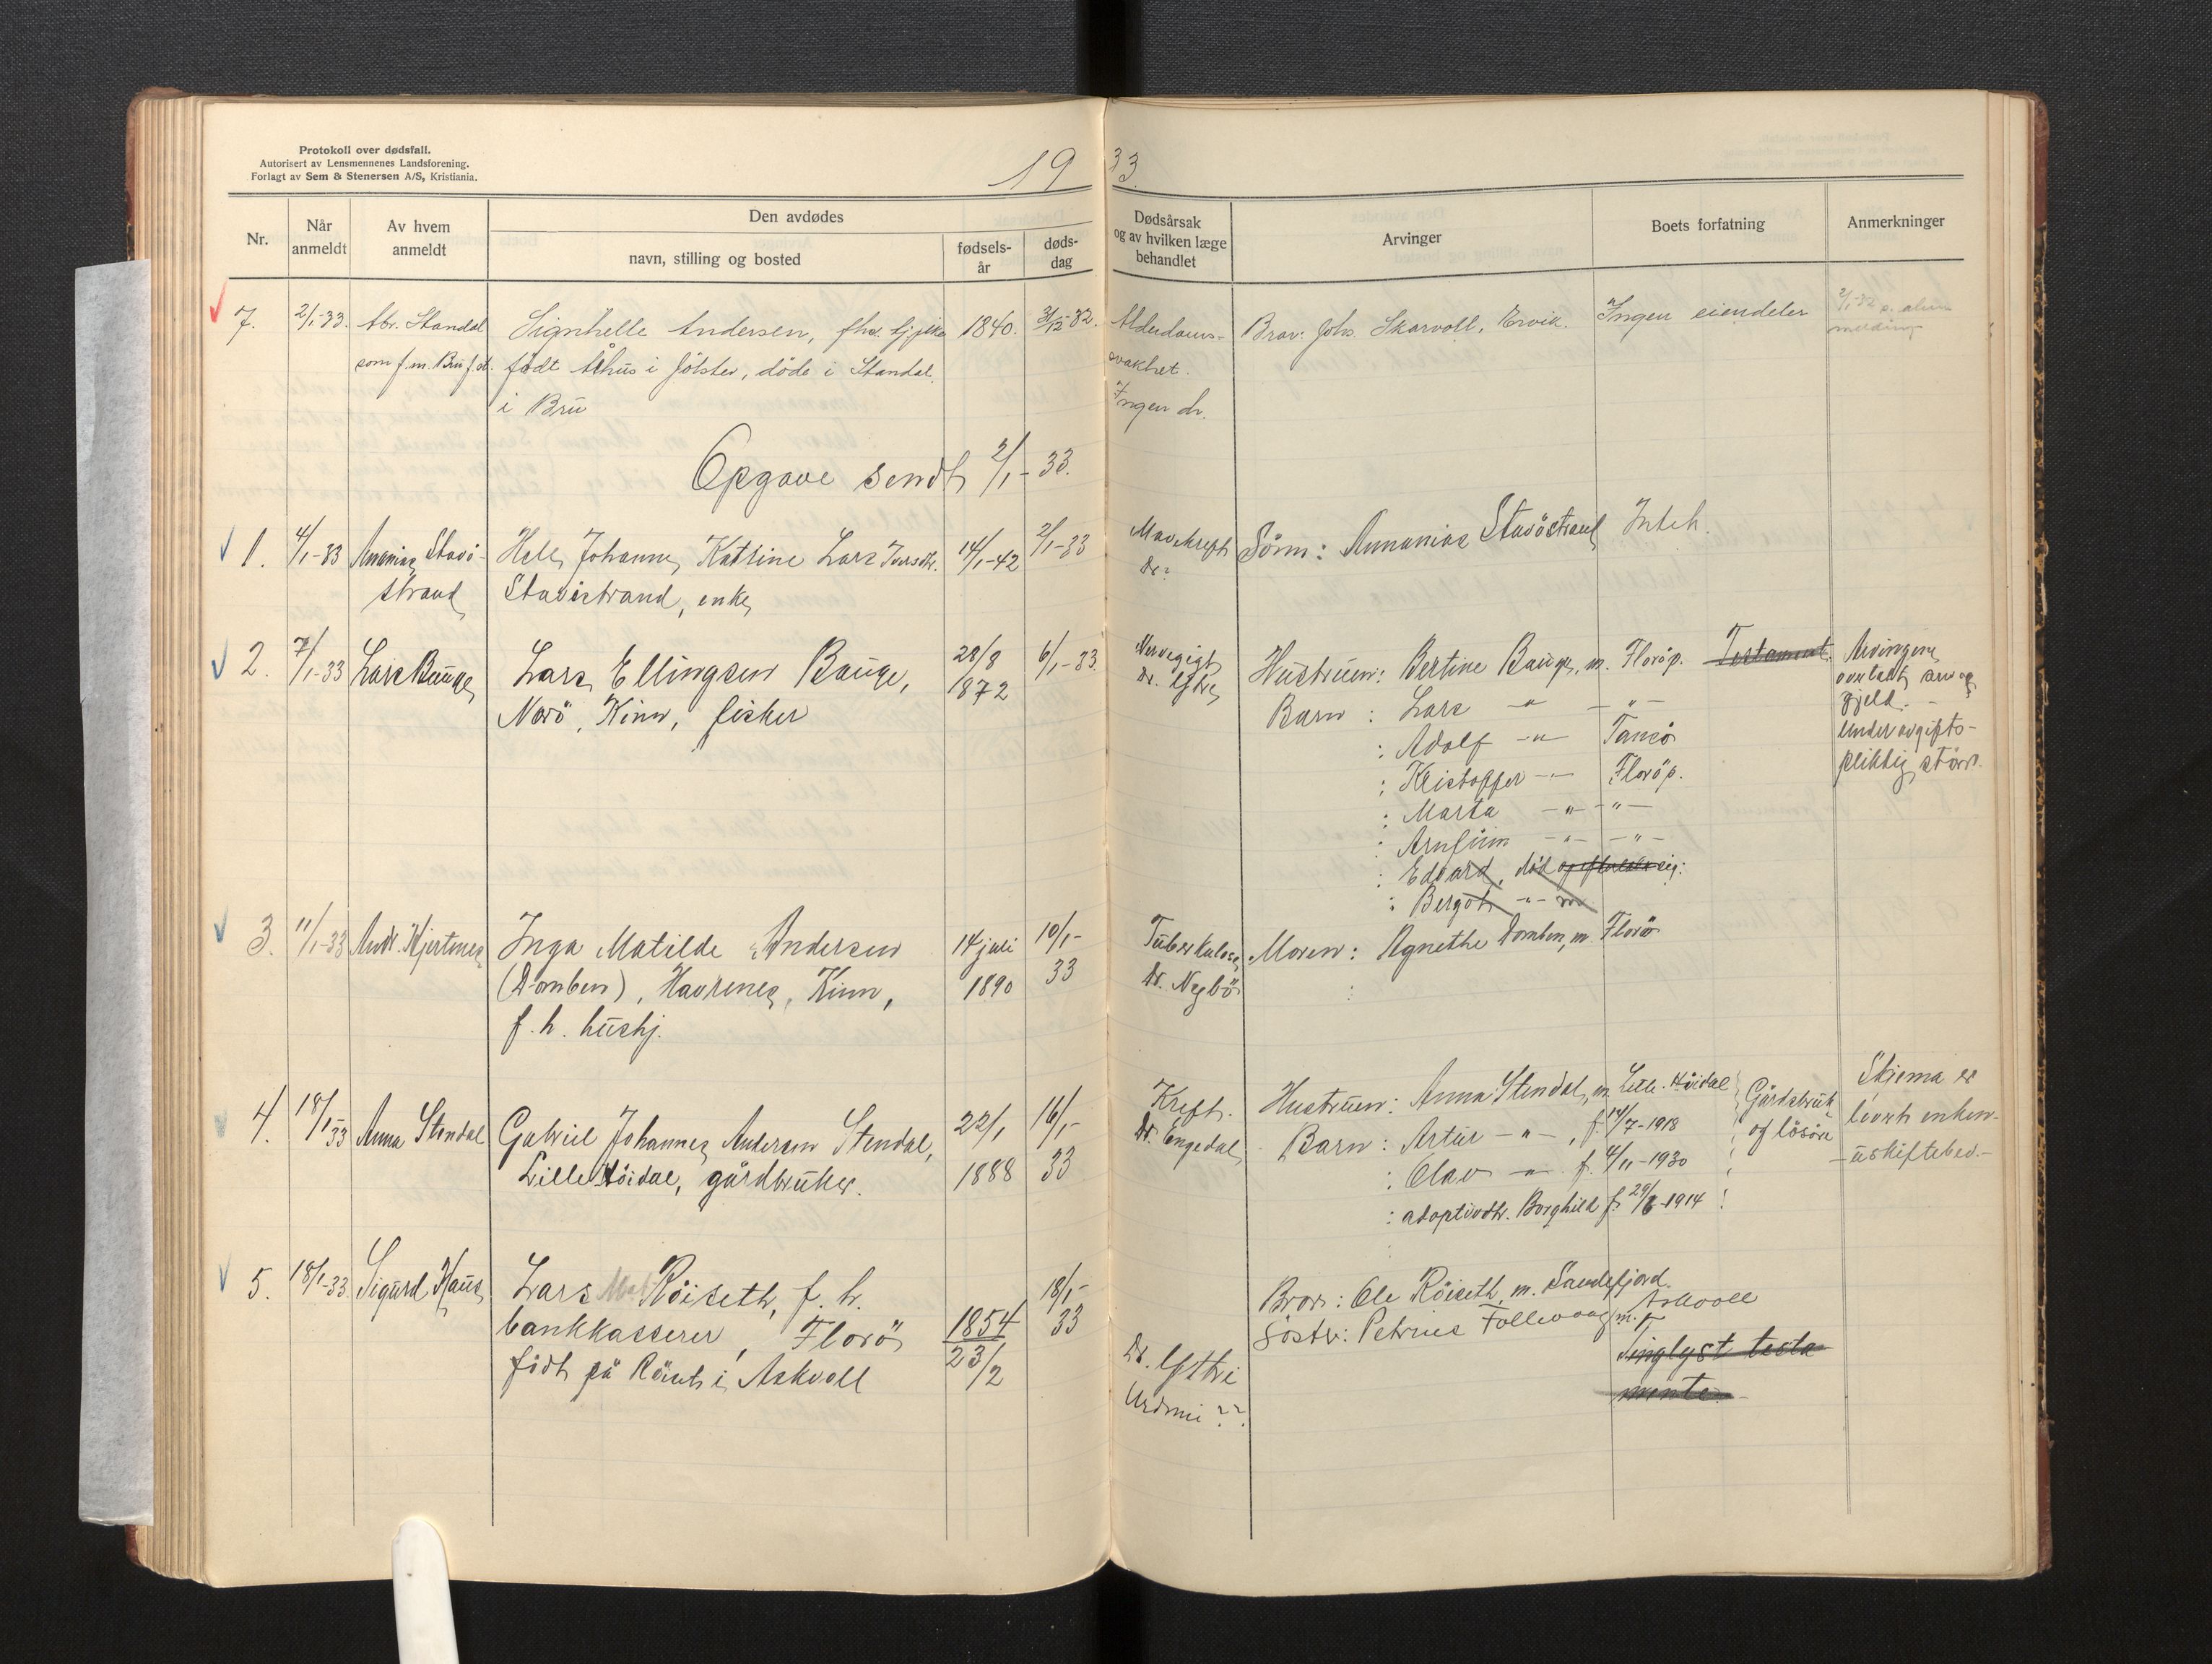 Protokoll over dødsfall.
Autorisert av Lensmennenes Landsforening.
Forlagt av Sem & Stenersen A/S, Kristiania.
1933
Nr.
Når anmeldt
Av hvem anmeldt
Den avdødes
navn, stilling og bosted
fødsels-
år
døds-
dag
Dødsårsak
og av hvilken læge
behandlet
Arvinger
Boets forfatning
Anmerkninger
7. 2/1-33. Abr. Standal Signhelle Andersen, 1840. 31/12-32. Alderdoms- Bror: Johs. Skarvoll, Ervik. Ingen eiendeler
som f.m. Bru f.d. født Århus i Jölster, döde i Standal svakhet.
i Bru Ingen dr.
Opgave sendt 2/1-33.
1. 4/1-33 Ananias Stavö- Johanne Katrine Lars Iversdtr. 14/1-42 2/1-33 Mavekreft Sönn: Annanias Stavöstrand Intet.
strand Stavöstrand, enke Dr?
2. 7/1-33 Lars Bauge Lars Ellingsen Bauge, 28/8 6/1-33. Nervegigt Hustruen: Bertine Bauge, m. Florö p. Testament. Arvingene
Norö, Kinn, fisker 1872 Dr. Barn : Lars -"- -"- overtatt arv og
gjeld. -
: Adolf -"- Tansö Under avgifts-
: Kristoffer -"- Florö p. pliktig störr.
: Marta -"- -"-
: Arnfinn -"- -"-
: Edvard, död
: Bergot -"-
3. 11/1-33 Andr. Hjertenes Inga Matilde Andersen 14 juli 10/1- Tuberkulose Moren: Agnethe Domben, m. Florö
(Domben), Havrenes, Kinn, 1890 33 Dr. Negbö
f. h. hushj.
4. 18/1-33 Anna Stendal Gabriel Johannes Andersen Stendal, 22/1 16/1- Kreft. Hustruen: Anna Stendal, m. Lille-Höidal Gårdsbruk Skjema er
Lille Höidal, gårdbruker. 1888 33 Dr. Engedal Barn: Artur -"-, f. 14/7-1918 og lösöre levert enken-
: Olav -"- f. 4/11-1930 - uskiftebev.-
: adoptivdtr. Borghild f. 29/6-1914
5. 18/1-33 Sigurd Haus Lars Röiseth, f. h. 18/1- Bror: Ole Röiseth, m. Sandefjord.
bankkasserer, Florö 1854 33 Söster: Petrine Follevaag m. Askvoll
23/2
födt på i Askvoll Dr. Tinglyst testa
mente.